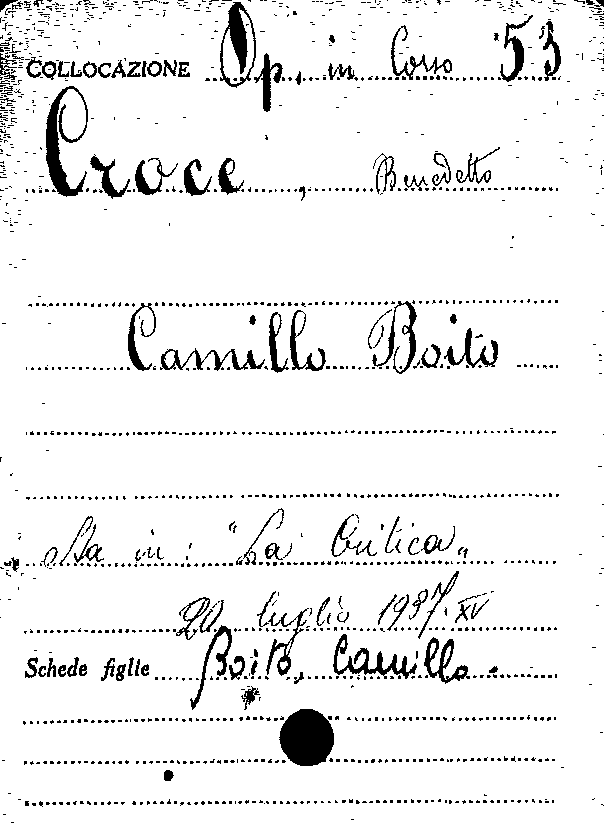 COLLOCAZIONE Op. in Corso 53
Croce, Benedetto
Camillo Boito
Sta in: "La Critica„
20 luglio 1937.XV
Schede figlie Boito, Camillo.